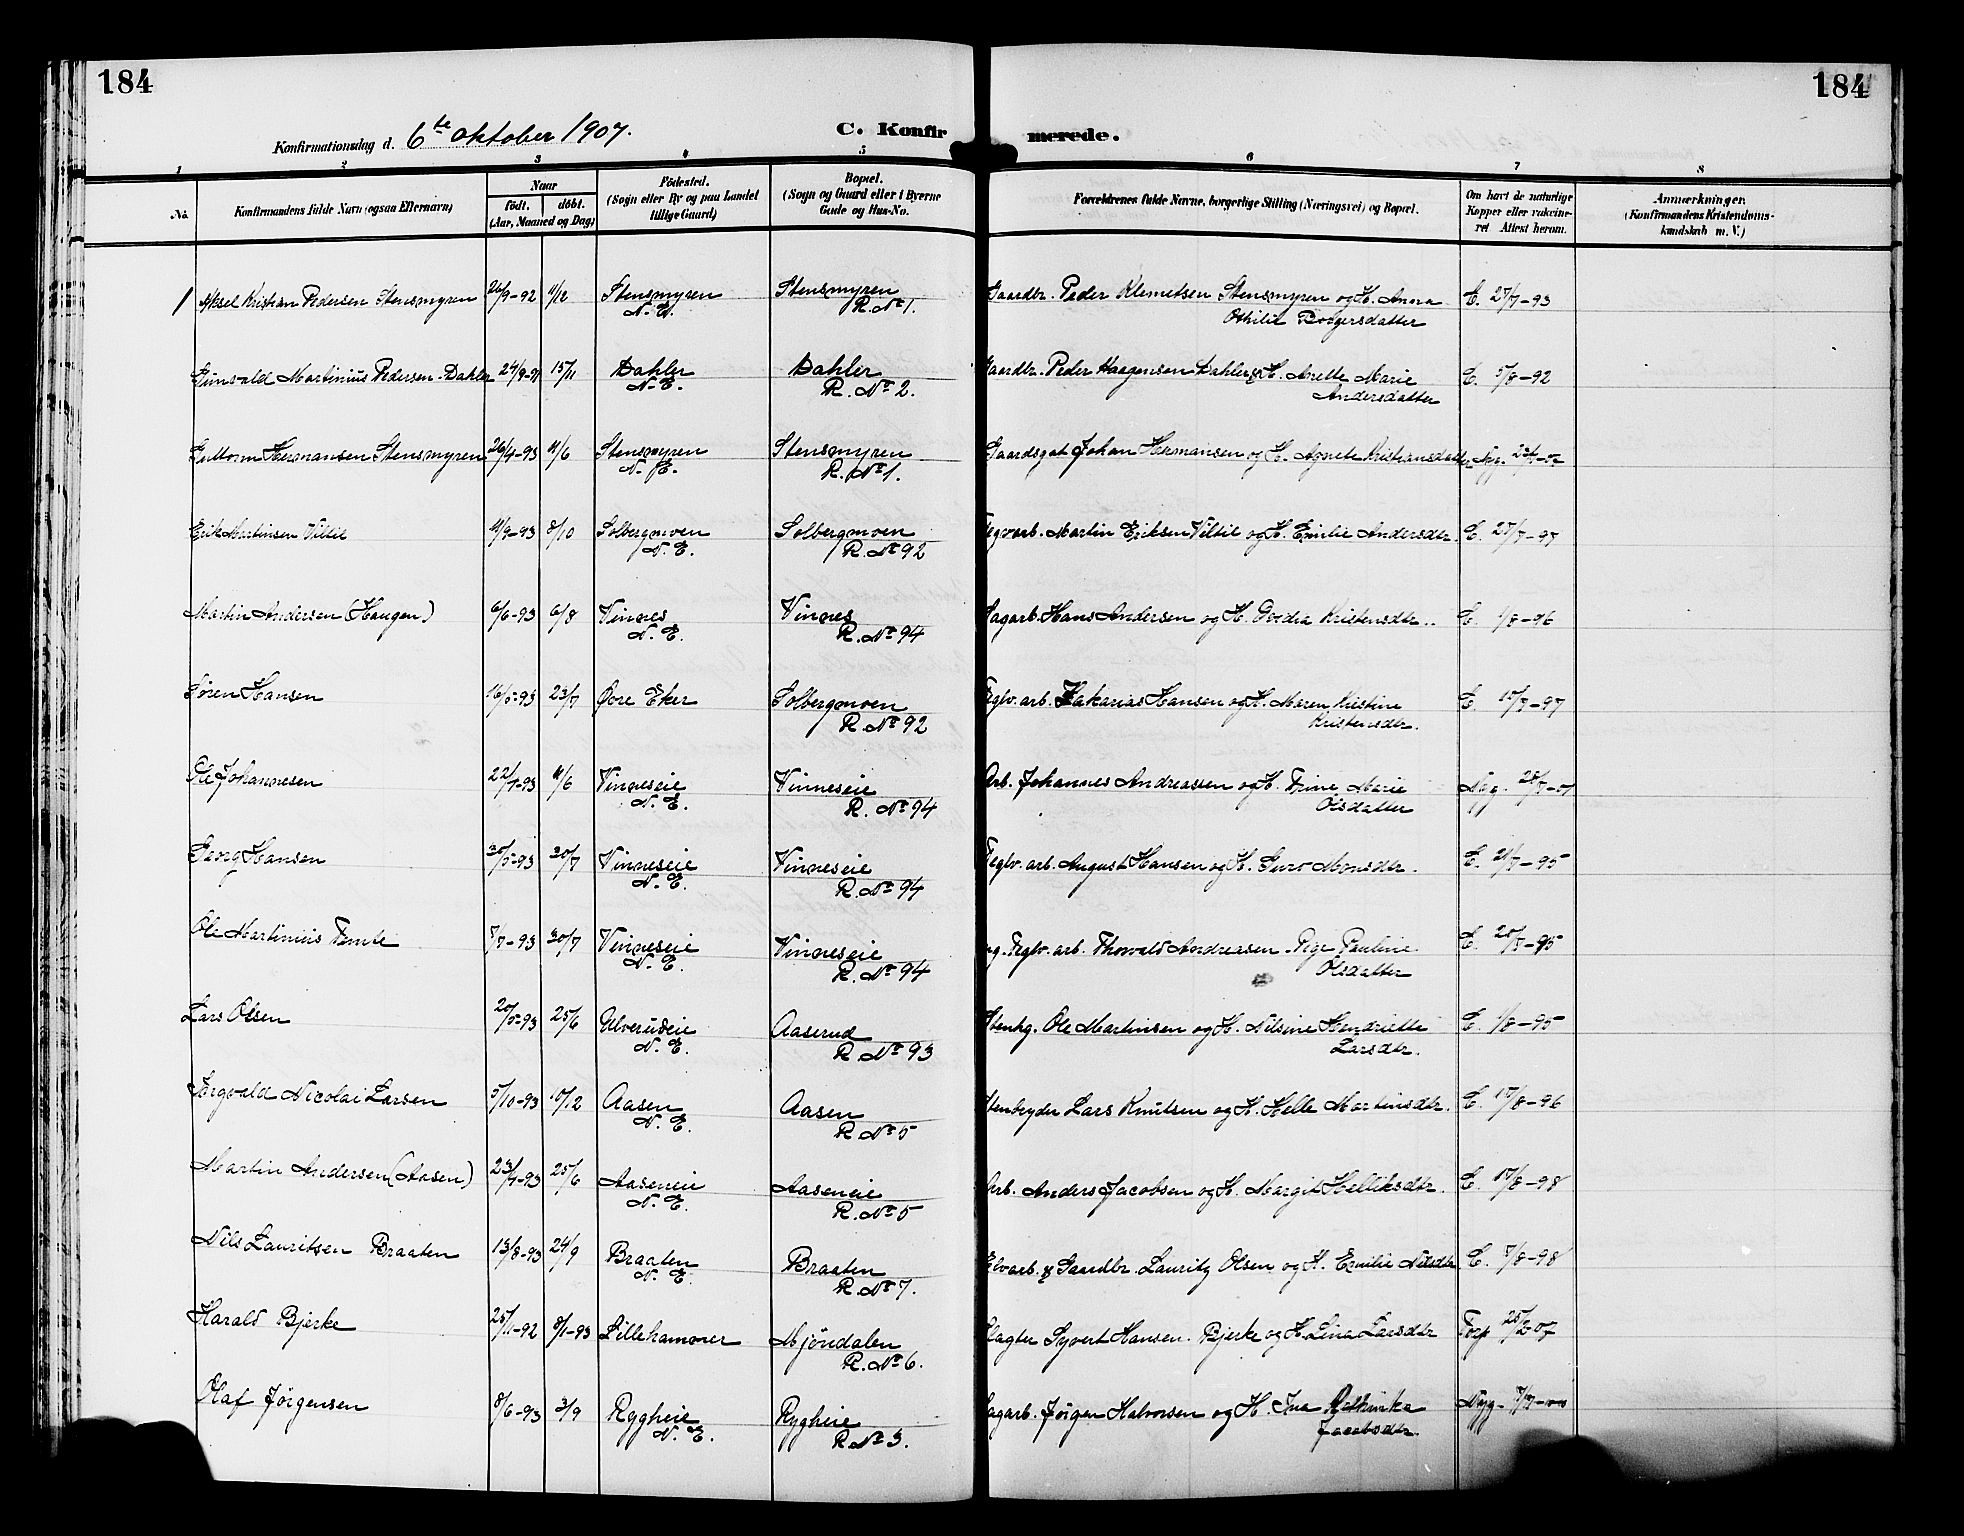 184
184
Konfirmationsdag d. 6te oktober 1907.
C. Konfir merede.
1 2 3 4 5 6 7 8
No.
Konfirmandens fulde Navn (ogsaa Efternavn)
Naar
født. døbt.
(Aar, Maaned og Dag)
Fødested.
(Sogn eller By og paa Landet
tillige Gaard)
Bopæl.
(Sogn og Gaard eller i Byerne
Gade og Hus-No.
Forældrenes fulde Navne, borgerlige Stilling (Næringsvei) og Bopæl.
Om havt de naturlige
Kopper eller vakcine-
ret Attest herom.
Anmærkninger.
(Konfirmandens Kristendoms-
kundskab m. V.)
1 Aksel Kristian Pedersen Stensmyren 26/9-92 11/12 Stensmyren Stensmyren Gaardbr. Peder Klemetsen Stensmyren og H. Anna E. 27/7-93
N. E. R. No 1. Othilie Borgersdatter
Gunvald Martinius Pedersen Dahler 24/9-91 15/11 Dahler Dahler Gaardbr. Peder Haagensen Dahler & H. Anette Marie E. 5/8-92
N. E. R. No 2. Andersdatter
Guttorm Hermansen Stensmyren 26/4-93 11/6 Stensmyren Stensmyren Gaardsgut Johan Hermansen og H. Agnete Kristiansdatter
N. E. R. No 1.
Erik Martinsen Viltil 4/9-93 8/10 Solbergmoen Solbergmoen Teglvarb. Martin Eriksen Viltil og H. Emilie Andersdtr. E. 27/7-97
N. E. R. No 92
Martin Andersen (Haugen) 6/6-93 6/8 Vinnes Vinnes Sagarb. Hans Andersen og H. Kristensdtr. E. 1/8-96
N. E. R. No 94
Søren Hansen 16/5-93 23/7 Øvre Eker Solbergmoen Teglv. arb. Zakarias Hansen og H. Maren Kristine E. 15/7-97
R. No 92 Kristensdtr.
Ole Johannesen 22/4-93 11/6 Vinneseie Vinneseie Arb. Johannes Andreassen og H. Trine Marie Nyg. 25/7-01
N. E. R. No 94 Olsdatter
Georg Hansen 30/5-93 30/7 Vinneseie Vinneseie Teglv. arb. August Hansen og H. Guro Monsdtr. E. 21/7-95
N. E. R. No 94
Ole Martinius 7/7-93 30/7 Vinneseie Vinneseie ug. Teglv. arb. Thorvald Andreasen. Pige Pauline E. 20/7-95
N. E. R. No 94 Olsdatter
Lars Olsen 20/5-93 25/6 Ulverudeie Aaserud Stenhg. Ole Martinsen og H. Nilsine Hendriette E. 1/8-95
N. E. R. No 93 Larsdtr.
Torgvald Nicolai Larsen 5/10-93 10/12 Aasen Aasen Stenbryder Lars Knutsen og H. Helle Martinsdtr. E. 15/8-96
N. E. R. No 5
Martin Andersen (Aasen) 23/4-93 25/6 Aaseneie Aaseneie Arb. Anders Jacobsen og H. Margit Helliksdtr. E. 17/8-98
N. E. R. No 5
Nils Lauritsen Braaten 13/8-93 24/9 Braaten Braaten Elvarb. & Gaardbr. Lauritz Olsen og H. Emilie Nilsdtr E. 7/8-98
N. E. R. No 7.
Harald Bjerke 25/11-92 8/1-93 Lillehammer Mjøndalen Slagter Syvert Hansen Bjerke og H. Lina Larsdtr Torp 25/2-07
R. No 6.
Olaf Jørgensen 8/6-93 3/9 Rygheie Rygheie Sagarb. Jørgen Halvorsen og H. Ina
N. E. R. No 3. Jacobsdtr.